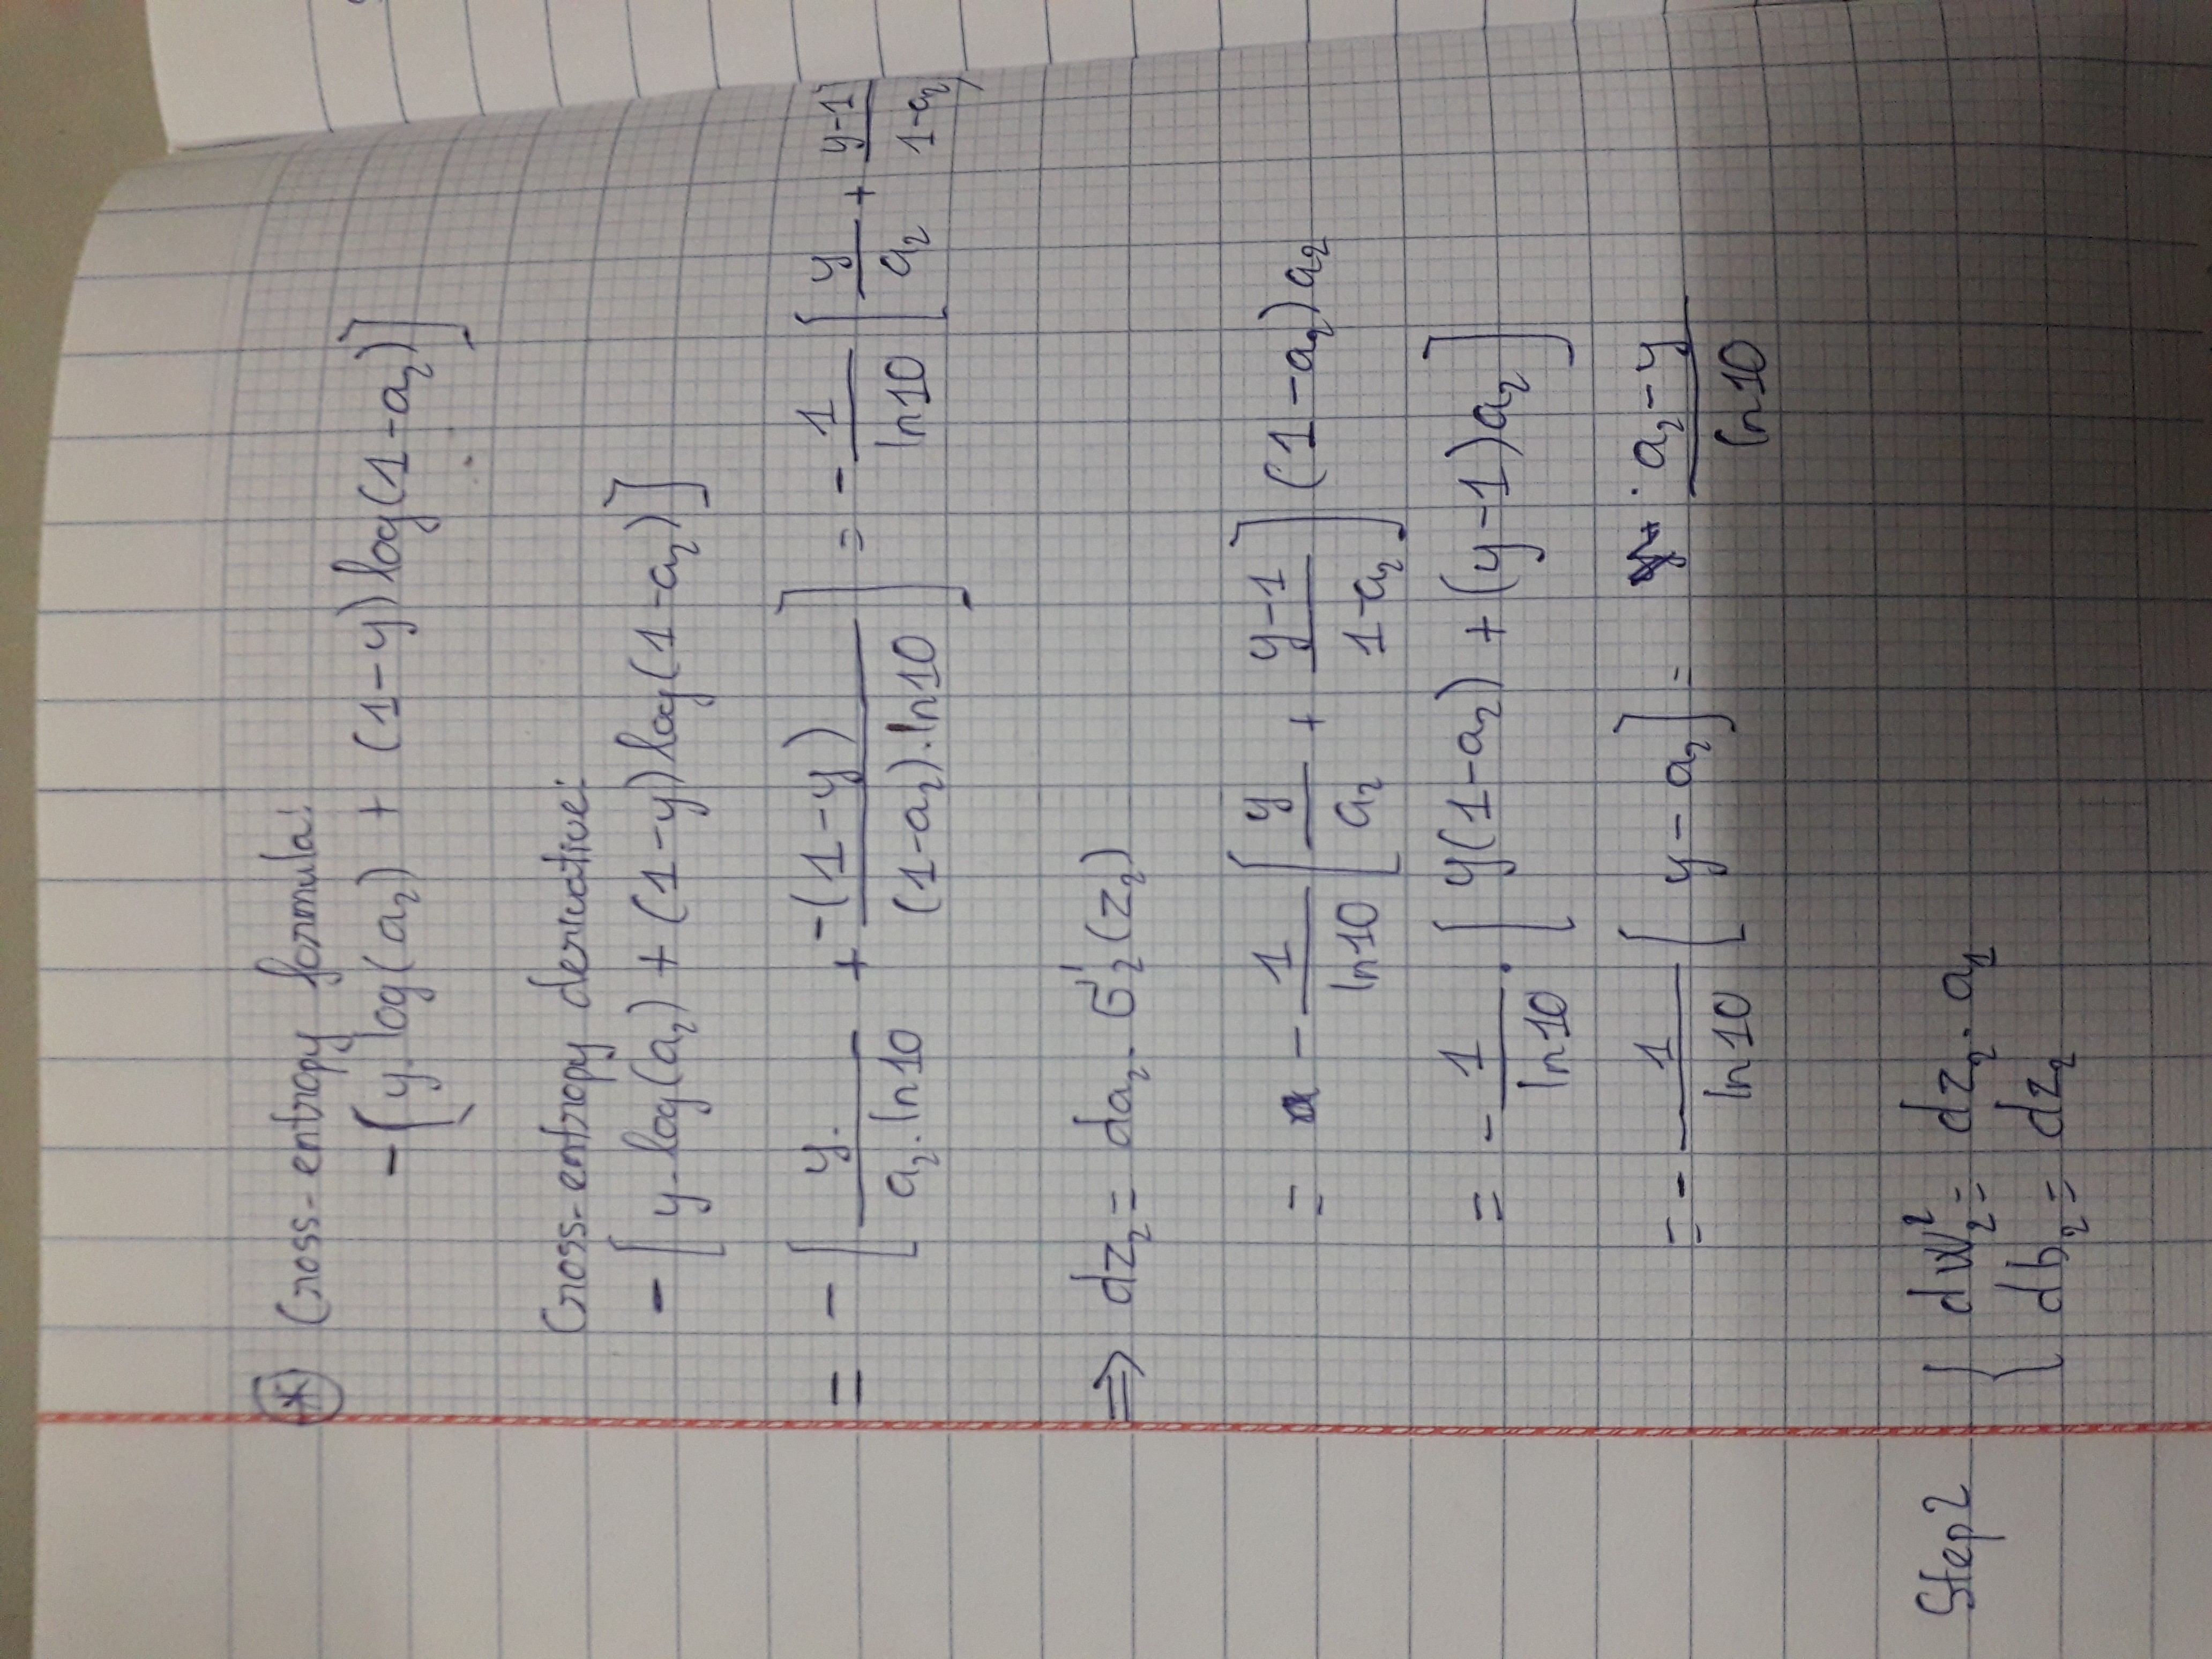 * Cross-entropy formula:
-[y.log(a₂) + (1-y)log(1-a₂)]
Cross-entropy derivative:
-[y.log(a₂) + (1-y)log(1-a₂)]
= -[y. / (a₂.ln10) + -(1-y) / ((1-a₂).ln10)] = -1/ln10 [y/a₂ + (y-1)/(1-a₂)]
⇒ dz₂ = da₂. σ'₂(z₂)
= -1/ln10 [y/a₂ + (y-1)/(1-a₂)] (1-a₂)a₂
= -1/ln10 . [y(1-a₂) + (y-1)a₂]
= -1/ln10 [y - a₂] = (a₂-y)/ln10
Step 2 { dW₂² = dz₂. a₁
db₂ = dz₂